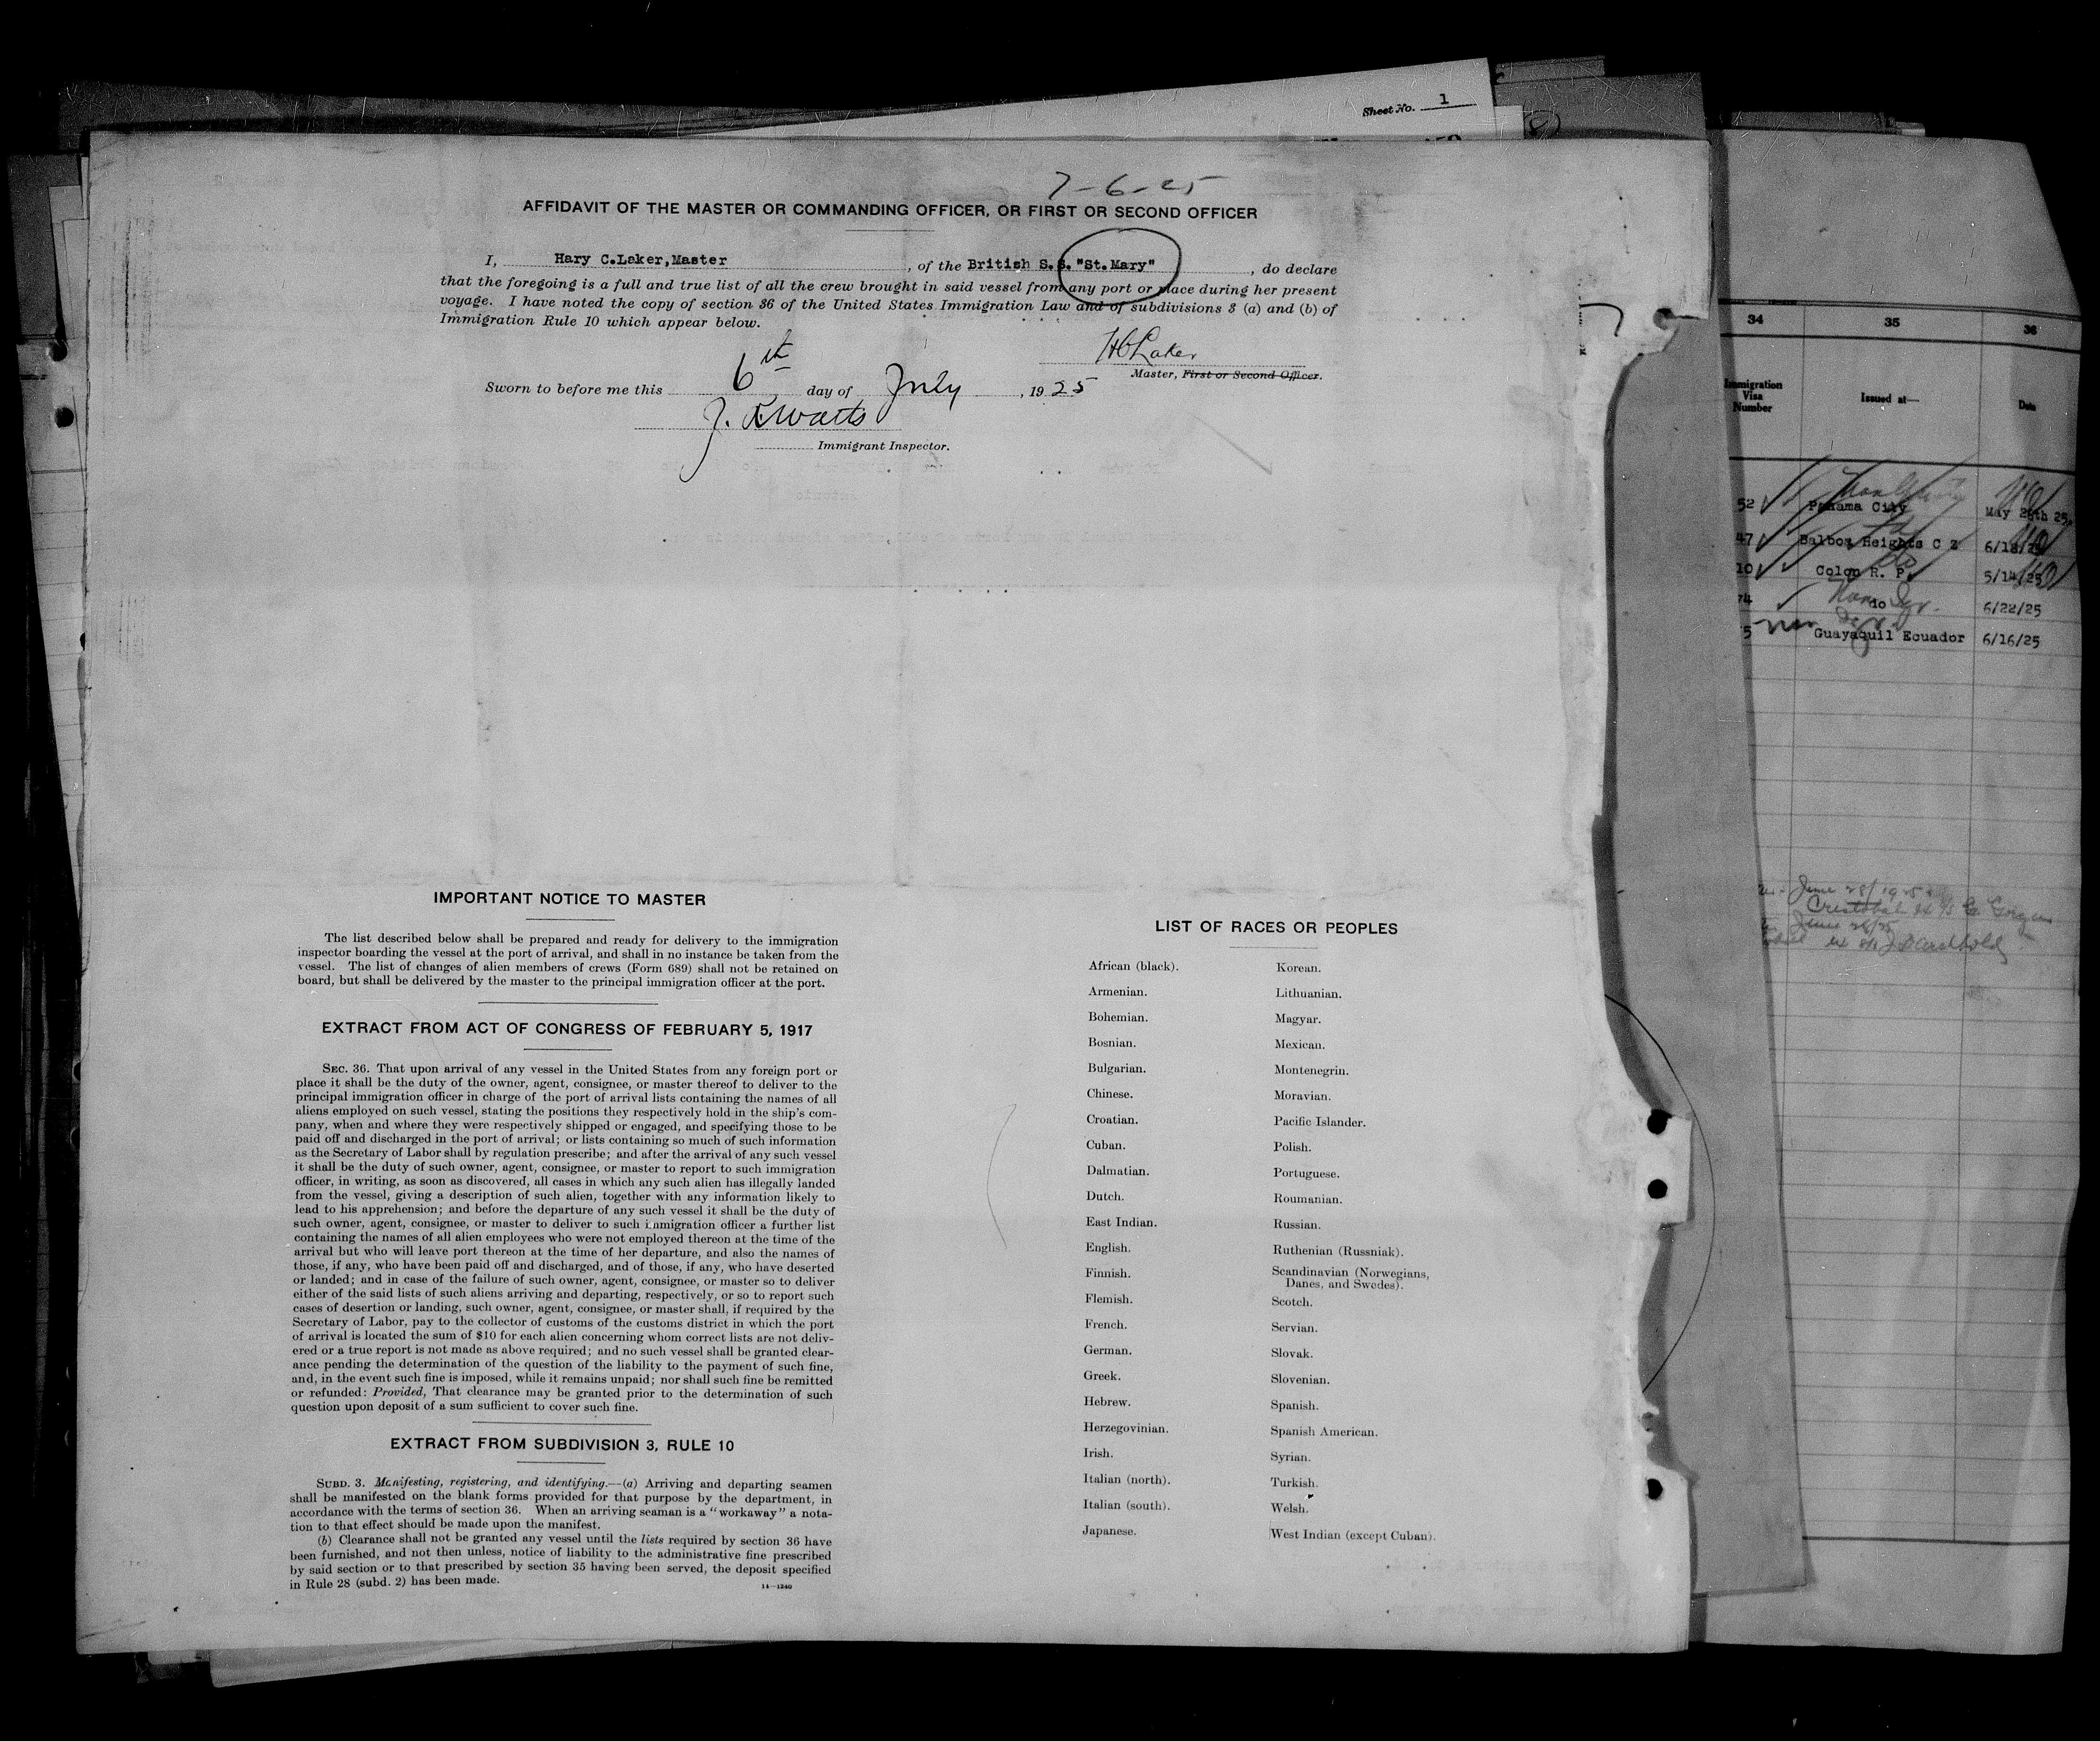 Sheet No. 1
7-6-25
AFFIDAVIT OF THE MASTER OR COMMANDING OFFICER, OR FIRST OR SECOND OFFICER
I, Hary C.Laker,Master, of the British S.S. "St.Mary", do declare
that the foregoing is a full and true list of all the crew brought in said vessel from any port or place during her present
voyage. I have noted the copy of section 36 of the United States Immigration Law and of subdivisions 3 (a) and (b) of
Immigration Rule 10 which appear below.
HC Laker
Master, First or Second Officer.
Sworn to before me this 6th day of July, 1925
J. R Watts
Immigrant Inspector.
IMPORTANT NOTICE TO MASTER
The list described below shall be prepared and ready for delivery to the immigration
inspector boarding the vessel at the port of arrival, and shall in no instance be taken from the
vessel. The list of changes of alien members of crews (Form 689) shall not be retained on
board, but shall be delivered by the master to the principal immigration officer at the port.
EXTRACT FROM ACT OF CONGRESS OF FEBRUARY 5, 1917
SEC. 36. That upon arrival of any vessel in the United States from any foreign port or
place it shall be the duty of the owner, agent, consignee, or master thereof to deliver to the
principal immigration officer in charge of the port of arrival lists containing the names of all
aliens employed on such vessel, stating the positions they respectively hold in the ship's com-
pany, when and where they were respectively shipped or engaged, and specifying those to be
paid off and discharged in the port of arrival; or lists containing so much of such information
as the Secretary of Labor shall by regulation prescribe; and after the arrival of any such vessel
it shall be the duty of such owner, agent, consignee, or master to report to such immigration
officer, in writing, as soon as discovered, all cases in which any such alien has illegally landed
from the vessel, giving a description of such alien, together with any information likely to
lead to his apprehension; and before the departure of any such vessel it shall be the duty of
such owner, agent, consignee, or master to deliver to such immigration officer a further list
containing the names of all alien employees who were not employed thereon at the time of the
arrival but who will leave port thereon at the time of her departure, and also the names of
those, if any, who have been paid off and discharged, and of those, if any, who have deserted
or landed; and in case of the failure of such owner, agent, consignee, or master so to deliver
either of the said lists of such aliens arriving and departing, respectively, or so to report such
cases of desertion or landing, such owner, agent, consignee, or master shall, if required by the
Secretary of Labor, pay to the collector of customs of the customs district in which the port
of arrival is located the sum of $10 for each alien concerning whom correct lists are not deliv-
ered or a true report is not made as above required; and no such vessel shall be granted clear-
ance pending the determination of the question of the liability to the payment of such fine,
and, in the event such fine is imposed, while it remains unpaid; nor shall such fine be remitted
or refunded: Provided, That clearance may be granted prior to the determination of such
question upon deposit of a sum sufficient to cover such fine.
EXTRACT FROM SUBDIVISION 3, RULE 10
SUBD. 3. Manifesting, registering, and identifying.—(a) Arriving and departing seamen
shall be manifested on the blank forms provided for that purpose by the department, in
accordance with the terms of section 36. When an arriving seaman is a "workaway" a nota-
tion to that effect should be made upon the manifest.
(b) Clearance shall not be granted any vessel until the lists required by section 36 have
been furnished, and not then unless, notice of liability to the administrative fine prescribed
by said section or to that prescribed by section 35 having been served, the deposit specified
in Rule 28 (subd. 2) has been made.
14-1240
LIST OF RACES OR PEOPLES
African (black).
Armenian.
Bohemian.
Bosnian.
Bulgarian.
Chinese.
Croatian.
Cuban.
Dalmatian.
Dutch.
East Indian.
English.
Finnish.
Flemish.
French.
German.
Greek.
Hebrew.
Herzegovinian.
Irish.
Italian (north).
Italian (south).
Japanese.
Korean.
Lithuanian.
Magyar.
Mexican.
Montenegrin.
Moravian.
Pacific Islander.
Polish.
Portuguese.
Roumanian.
Russian.
Ruthenian (Russniak).
Scandinavian (Norwegians,
Danes, and Swedes).
Scotch.
Servian.
Slovak.
Slovenian.
Spanish.
Spanish American.
Syrian.
Turkish.
Welsh.
West Indian (except Cuban).
34 35 36
Immigration
Visa
Number
Issued at—
Date
52 Panama City May 26th 25.
47 Balboa Heights C Z 6/18/25
10 Colon R. P. 5/14/25
74 do 6/22/25
5 Guayaquil Ecuador 6/16/25
June 28/1925
Cristobal
June 28/25